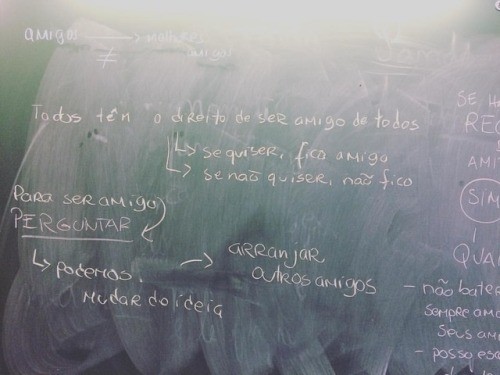 amigos → melhores
≠ amigos
Todos têm o direito de ser amigo de todos
↳ se quiser, fico amigo
↳ se não quiser, não fico
Para ser amigo
PERGUNTAR
↳ podemos → arranjar
mudar do ideia outros amigos
SE H
RE
AMI
SIM
QUA
- não bater
sempre am
seus am
- posso es